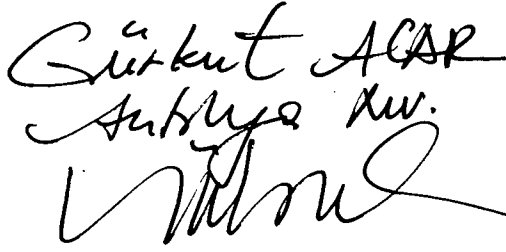 Gürkut ACAR
Antalya Mv.